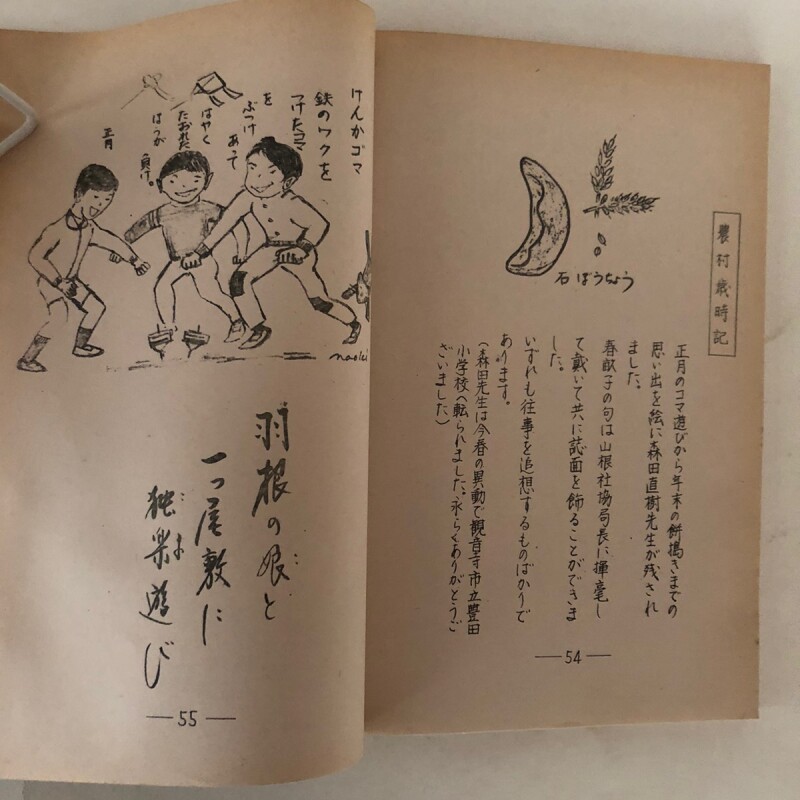 農村歳時記
石ぼうちょう
正月のコマ遊びから年末の餅搗きまでの
思い出を絵に森田直樹先生が残され
ました。
春猷子の句は山根社協局長に揮毫し
て戴いて共に誌面を飾ることができま
した。
いずれも往事を追想するものばかりで
あります。
(森田先生は今春の異動で観音寺市立豊田
小学校へ転られました、永らくありがとうご
ざいました)
—54—
けんかゴマ
鉄のワクを
つけたコマ
を
ぶつけ
あって
はやく
たおれた
ほうが
負け。
正月
naoki
羽根の娘と
一つ屋敷に
独楽遊び
—55—